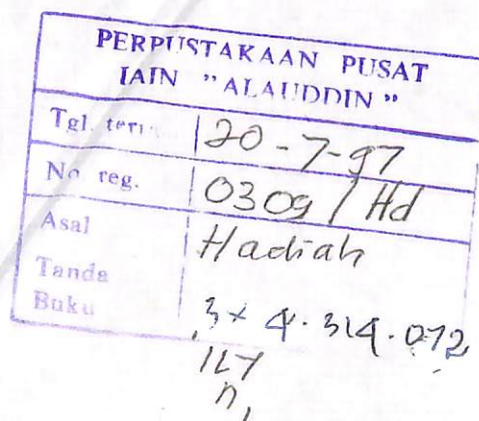 PERPUSTAKAAN PUSAT
IAIN "ALAUDDIN"
Tgl. 20-7-97
No reg. 0309 / Hd
Asal Hadiah
Tanda
Buku 3x4.314.072
ILY
n,